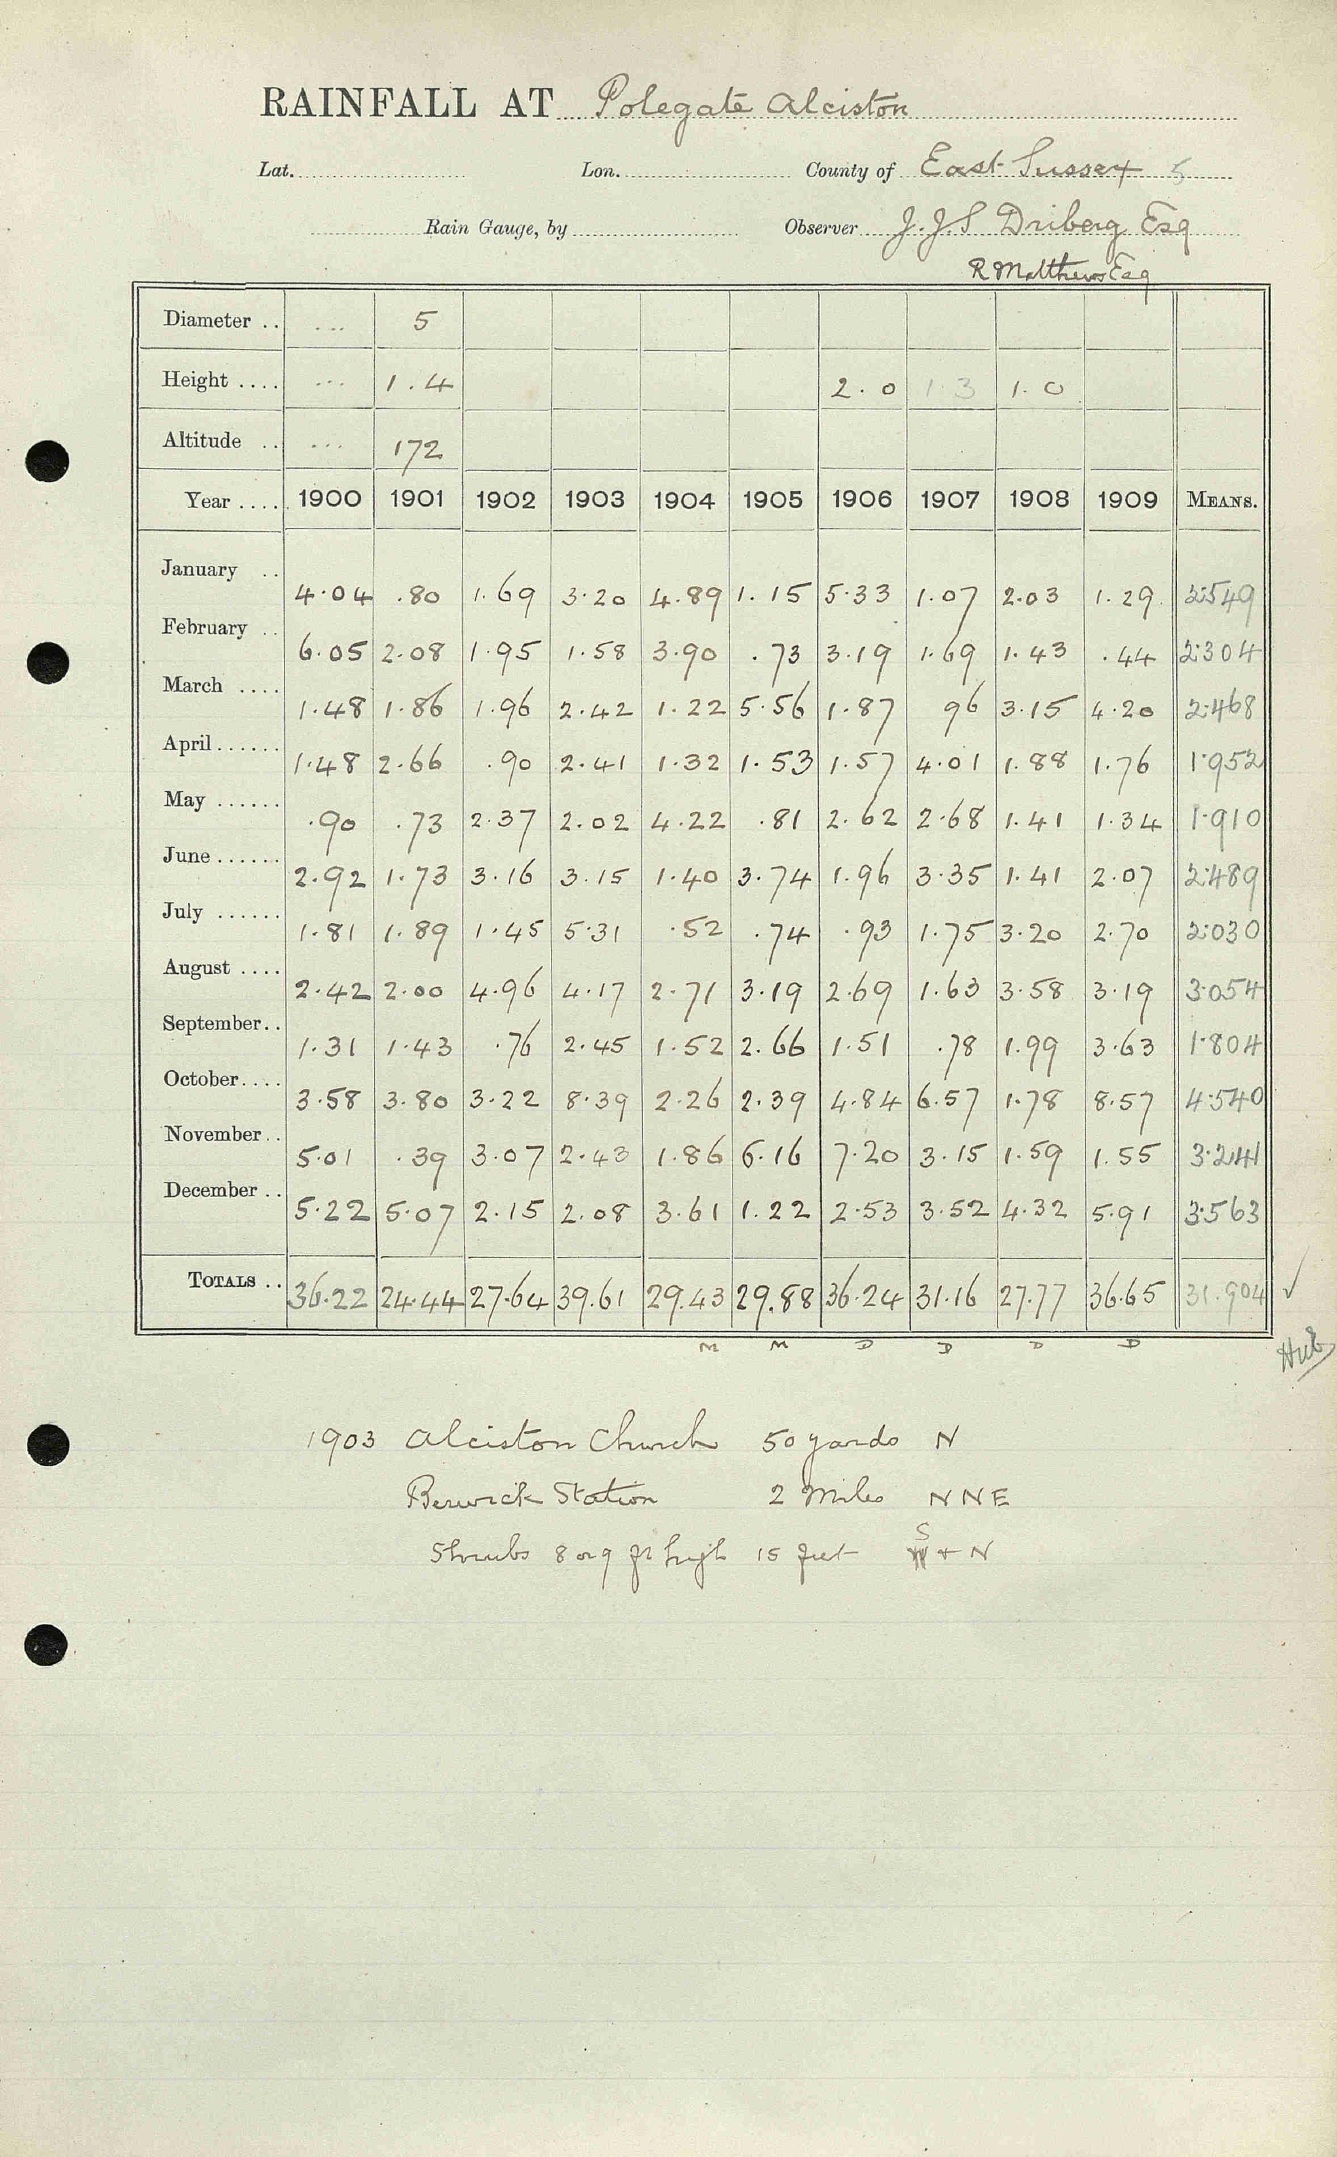 RAINFALL AT Polegate Alciston
Lat. Lon. County of East Sussex 5
Rain Gauge, by Observer J.J.S Driberg Esq
R Matthews Esq
Diameter .. ... 5
Height .... ... 1.4 2.0 1.3 1.0
Altitude .. ... 172
Year .... 1900 1901 1902 1903 1904 1905 1906 1907 1908 1909 MEANS.
January .. 4.04 .80 1.69 3.20 4.89 1.15 5.33 1.07 2.03 1.29 2.549
February .. 6.05 2.08 1.95 1.58 3.90 .73 3.19 1.69 1.43 .44 2.304
March .... 1.48 1.86 1.96 2.42 1.22 5.56 1.87 96 3.15 4.20 2.468
April ...... 1.48 2.66 .90 2.41 1.32 1.53 1.57 4.01 1.88 1.76 1.952
May ...... .90 .73 2.37 2.02 4.22 .81 2.62 2.68 1.41 1.34 1.910
June ...... 2.92 1.73 3.16 3.15 1.40 3.74 1.96 3.35 1.41 2.07 2.489
July ...... 1.81 1.89 1.45 5.31 .52 .74 .93 1.75 3.20 2.70 2.030
August .... 2.42 2.00 4.96 4.17 2.71 3.19 2.69 1.63 3.58 3.19 3.054
September.. 1.31 1.43 .76 2.45 1.52 2.66 1.51 .78 1.99 3.63 1.804
October.... 3.58 3.80 3.22 8.39 2.26 2.39 4.84 6.57 1.78 8.57 4.540
November.. 5.01 .39 3.07 2.43 1.86 6.16 7.20 3.15 1.59 1.55 3.241
December .. 5.22 5.07 2.15 2.08 3.61 1.22 2.53 3.52 4.32 5.91 3.563
TOTALS .. 36.22 24.44 27.64 39.61 29.43 29.88 36.24 31.16 27.77 36.65 31.904 ✓
M M D D D D
1903 Alciston Church 50 yards N
Berwick Station 2 Miles NNE
S
Shrubs 8 or 9 ft high 15 feet + N